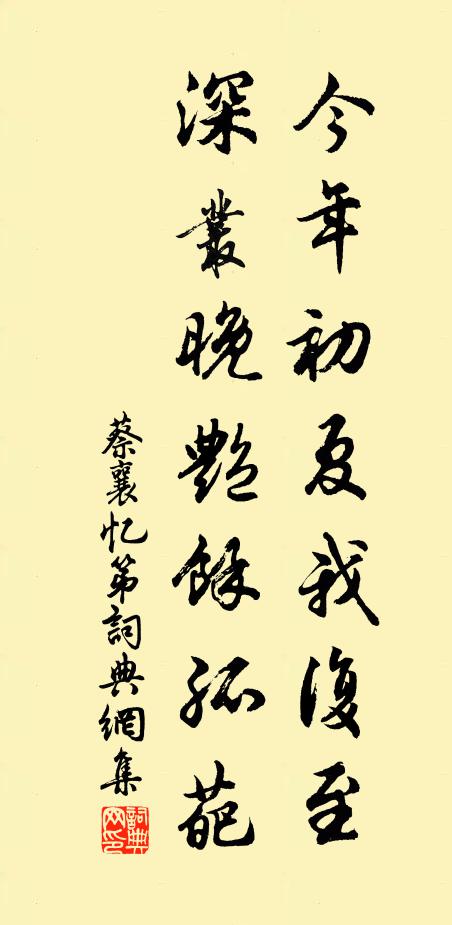 今年初夏我復至
深叢晚艷餘孤葩
蔡襄忆弟詞典網集
詞典網印